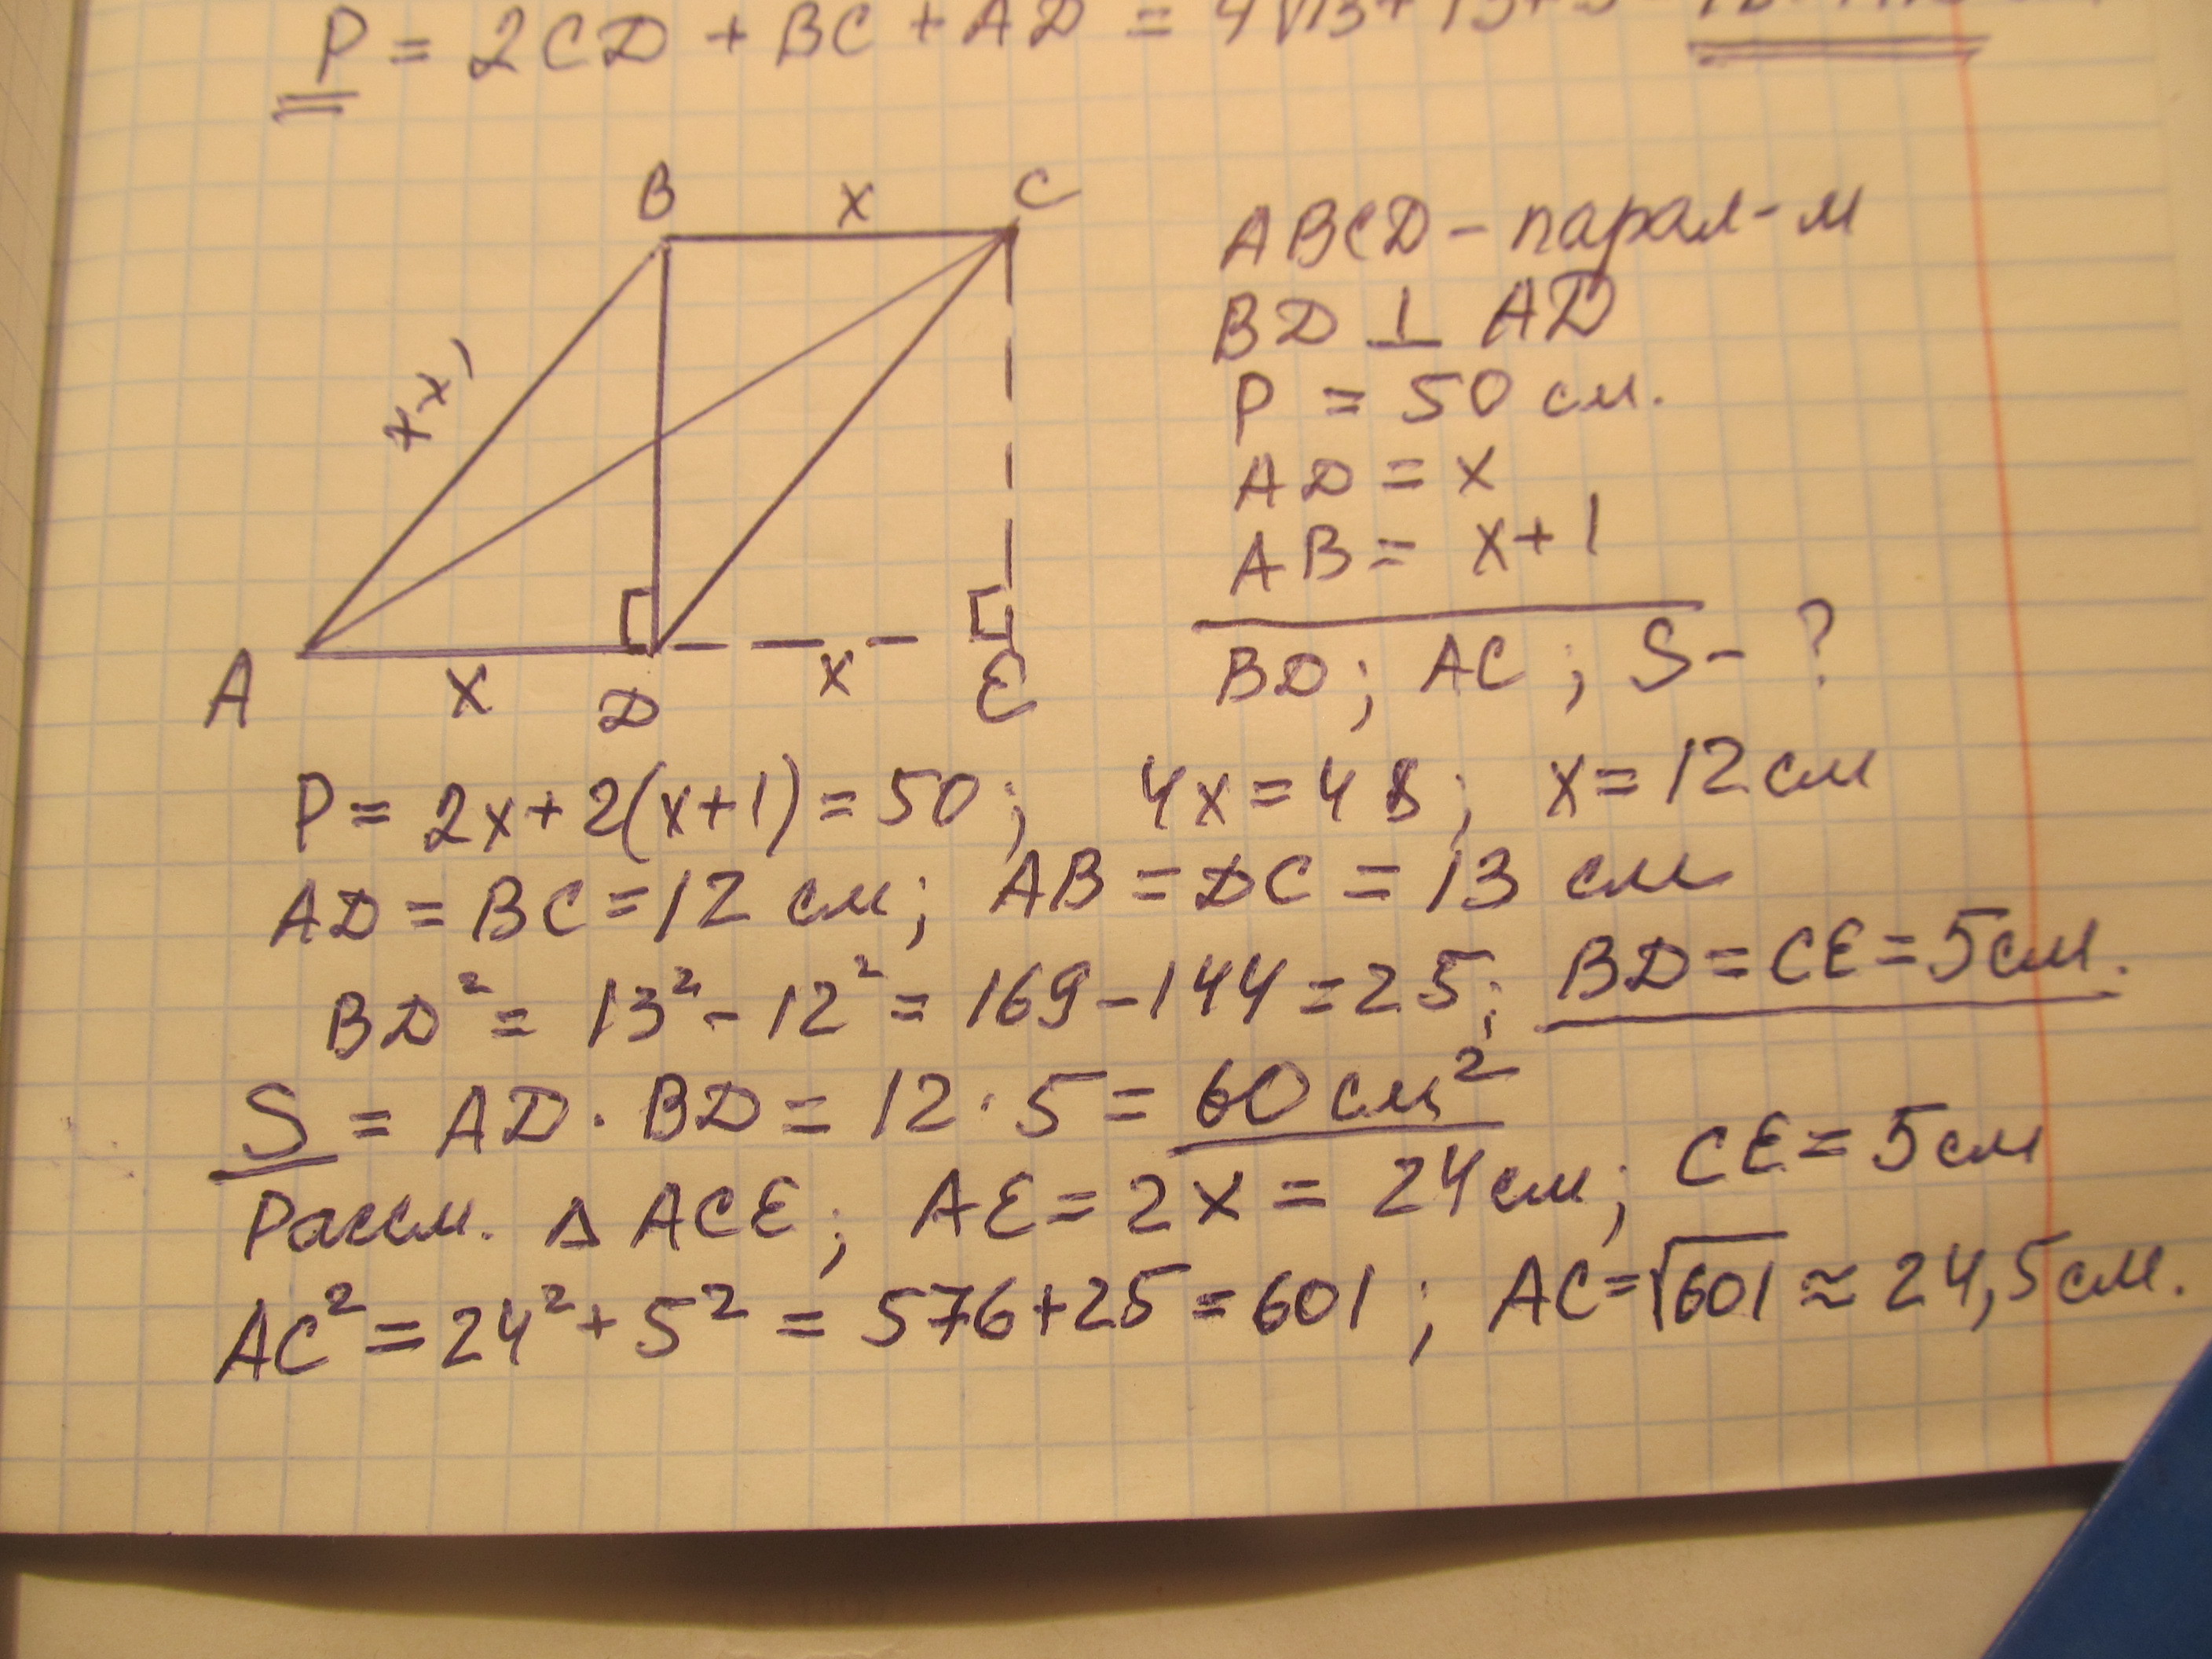 P = 2CD + BC + AD = 4√13 +
B x C
x+1
A x D x E
ABCD - парал-м
BD ⊥ AD
P = 50 см.
AD = x
AB = x+1
BD; AC; S - ?
P = 2x + 2(x+1) = 50; 4x = 48; x = 12 см
AD = BC = 12 см; AB = DC = 13 см
BD² = 13² - 12² = 169 - 144 = 25; BD = CE = 5 см.
S = AD · BD = 12 · 5 = 60 см²
Рассм. Δ ACE; AE = 2x = 24 см; CE = 5 см
AC² = 24² + 5² = 576 + 25 = 601; AC = √601 ≈ 24,5 см.